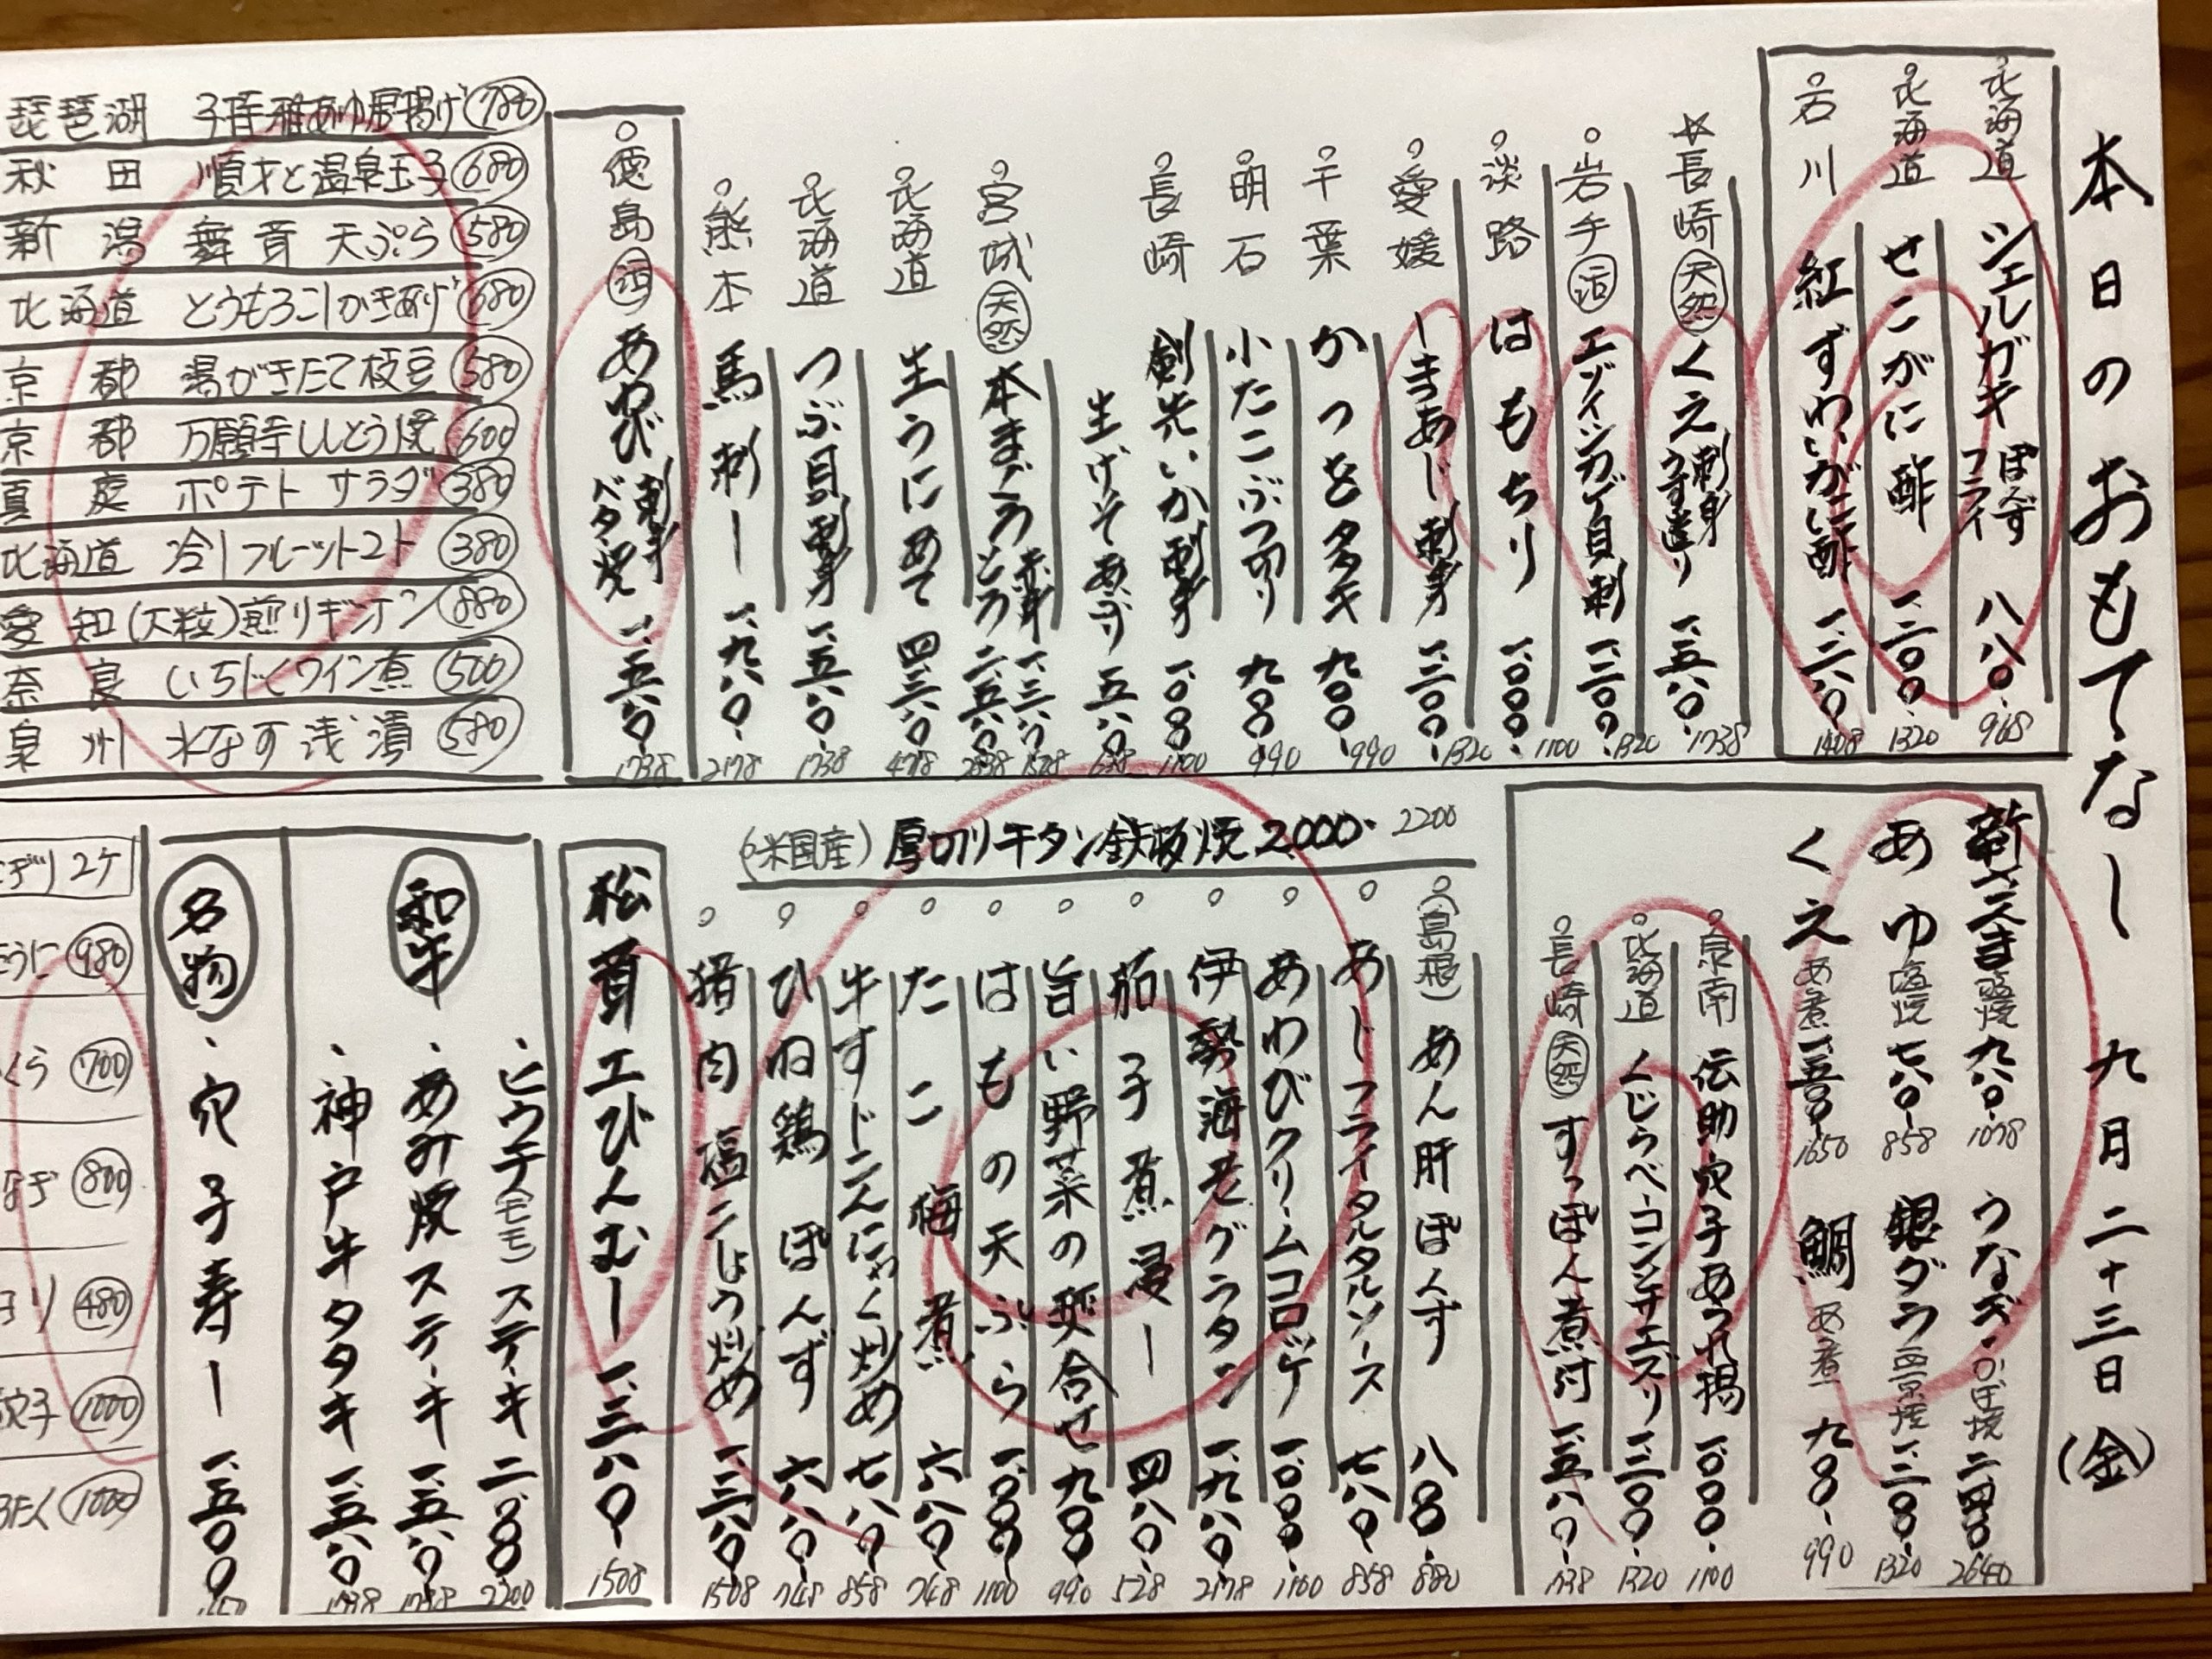 本日のおもてなし 九月二十三日(金)
北海道 シェルガキ ぽんず フライ 八八〇- 968
北海道 せこがに酢 一、二〇〇- 1320
石川 紅ずわいがに酢 一、二八〇- 1408
☆長崎 天然 くえ 刺身 うす造り 一、五八〇- 1738
岩手 活 エゾイシガゲ貝刺 一、二〇〇- 1320
淡路 はもちり 一、〇〇〇- 1100
愛媛 しまあじ刺身 一、二〇〇- 1320
千葉 かつをタタキ 九〇〇- 990
明石 小たこぶつ切り 九〇〇- 990
長崎 剣先いか刺身 一、〇〇〇- 1100
生げそあぶり 五八〇- 638
宮城 天然 本まぐろ 赤身 一、三八〇- 1518 とろ 二、五八〇- 2838
北海道 生うにあて 四、三八〇-
北海道 つぶ貝刺身 一、五八〇- 1738
熊本 馬刺し 一、九八〇- 2178
徳島 活 あわび 刺身 バタ焼 一、五八〇- 1738
琵琶湖 子持稚あゆ唐揚げ 780
秋田 順才と温泉玉子 680
新潟 舞茸天ぷら 580
北海道 とうもろこしかきあげ 680
京都 湯がきたて枝豆 580
京都 万願寺ししとう焼 600
真庭 ポテトサラダ 380
北海道 冷しフルーツトマト 380
愛知 (大粒)煎りギンナン 880
奈良 いちじくワイン煮 500
泉州 水なす浅漬 580
新さんま 塩焼 九八〇- 1078
うなぎ・かば焼 二、四〇〇- 2640
あゆ 塩焼 七八〇- 858
銀ダラ 西京焼 一、二〇〇- 1320
くえ あら煮 一、五〇〇- 1650
鯛 あら煮 九〇〇- 990
泉南 伝助穴子あられ揚 一、〇〇〇- 1100
北海道 くじらベーコン サエズリ 一、二〇〇- 1320
長崎 天然 すっぽん煮付 一、五八〇- 1738
(米国産) 厚切り牛タン鉄板焼 2000- 2200
(島根) あん肝ぽんず 八〇〇- 880
あじフライタルタルソース 七八〇- 858
あわびクリームコロッケ 一、〇〇〇- 1100
伊勢海老グラタン 一、九八〇- 2178
茄子煮浸し 四八〇- 528
旨い野菜の焚合せ 九〇〇- 990
はもの天ぷら 一、〇〇〇- 1100
たこ梅煮 六八〇- 748
牛すじこんにゃく炒め 七八〇- 858
ひね鶏ぽんず 六八〇- 748
猪肉塩こしょう炒め 一、三八〇- 1508
松茸 土びんむし 一、三八〇- 1508
和牛
・ヒウチ(モモ)ステーキ 二、〇〇〇- 2200
・あみ焼ステーキ 一、五八〇- 1738
・神戸牛タタキ 一、五八〇- 1738
名物 ・穴子寿し 一、五〇〇
ぎり 2ケ
うに 980
くら 700
なぎ 800
480
穴子 1000
1000